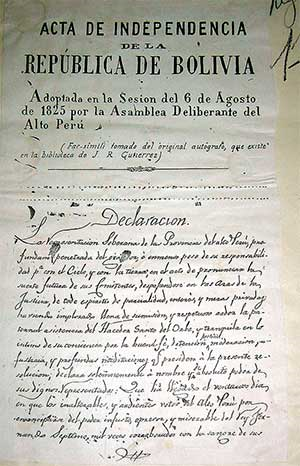 ACTA DE INDEPENDENCIA
DE LA
REPÚBLICA DE BOLIVIA
Adoptada en la Sesion del 6 de Agosto
de 1825 por la Asamblea Deliberante del
Alto Perú
(Far-símili tomado del original autógrafo, que existe
en la biblioteca de J. R. Gutierrez)
Declaracion.
La representacion Soberana de las Provincias del alto Perú, pro
fundam. penetrada del inmenso peso de su responsabili
dad p.ª con el Cielo, y con la tierra, en el acto de pronunciar la
suerte futura de sus Comitentes, despojandose en las Aras de la
Justicia, de todo espiritu de parcialidad, interés, y miras privadas
habiendo implorado, llena de sumision, y respetuoso
la pa
ternal asistencia del Hacedor Santo del Orbe, y tranquila en lo
intimo de su conciencia por la buena fé, detencion, moderacion,
justicia, y profundas meditaciones q.e presiden á la presente re
solucion, declara solemnemente á nombre y absoluto poder de
sus dignos representados: Que ha llegado el venturoso dia
en que los inalterables, y ardientes votos del Alto Perú por
emanciparse del poder injusto, opresor, y miserable del Rey Fer
nando Septimo, mil veces corroborados con la sangre de sus